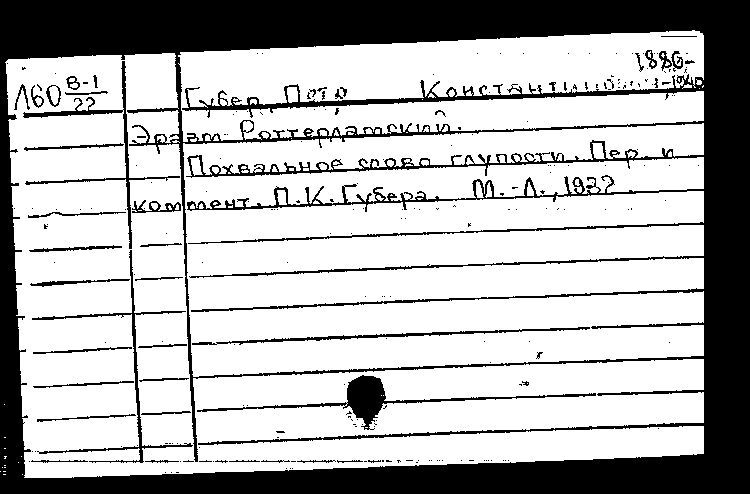 1886-
Л60 В-1/22 Губер, Петр Константинович, -1940
Эразм Роттердамский.
Похвальное слово глупости. Пер. и
коммент. П.К.Губера. М.-Л., 1932.